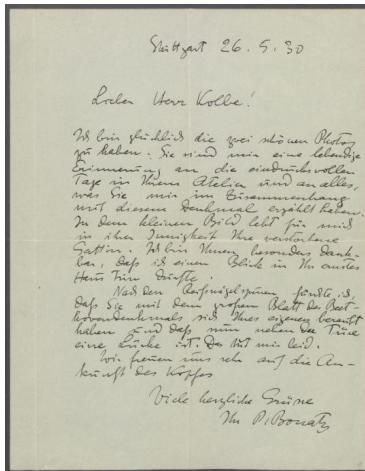 Stuttgart 26.5.30
Lieber Herr Kolbe!
Ich bin glücklich die zwei schönen Photos
zu haben. Sie sind mir eine lebendige
Erinnerung an die eindrucksvollen
Tage in Ihrem Atelier und an alles,
was Sie mir im Zusammenhang
mit diesem Denkmal erzählt haben.
In dem kleinen Bild lebt für mich
in ihrer Innigkeit Ihre verstorbene
Gattin. Ich bin Ihnen besonders dank-
bar, daß ich einen Blick in Ihr
Haus tun durfte.
Nach den fürchte ich,
daß Sie mit dem großen Blatt des Beet-
hovendenkmals sich Ihres eigenen beraubt
haben und daß nun neben der Türe
eine Lücke ist. Das tut mir leid.
Wir freuen uns sehr auf die An-
kunft des Kopfes
Viele herzliche Grüsse
Ihr P. Bonatz